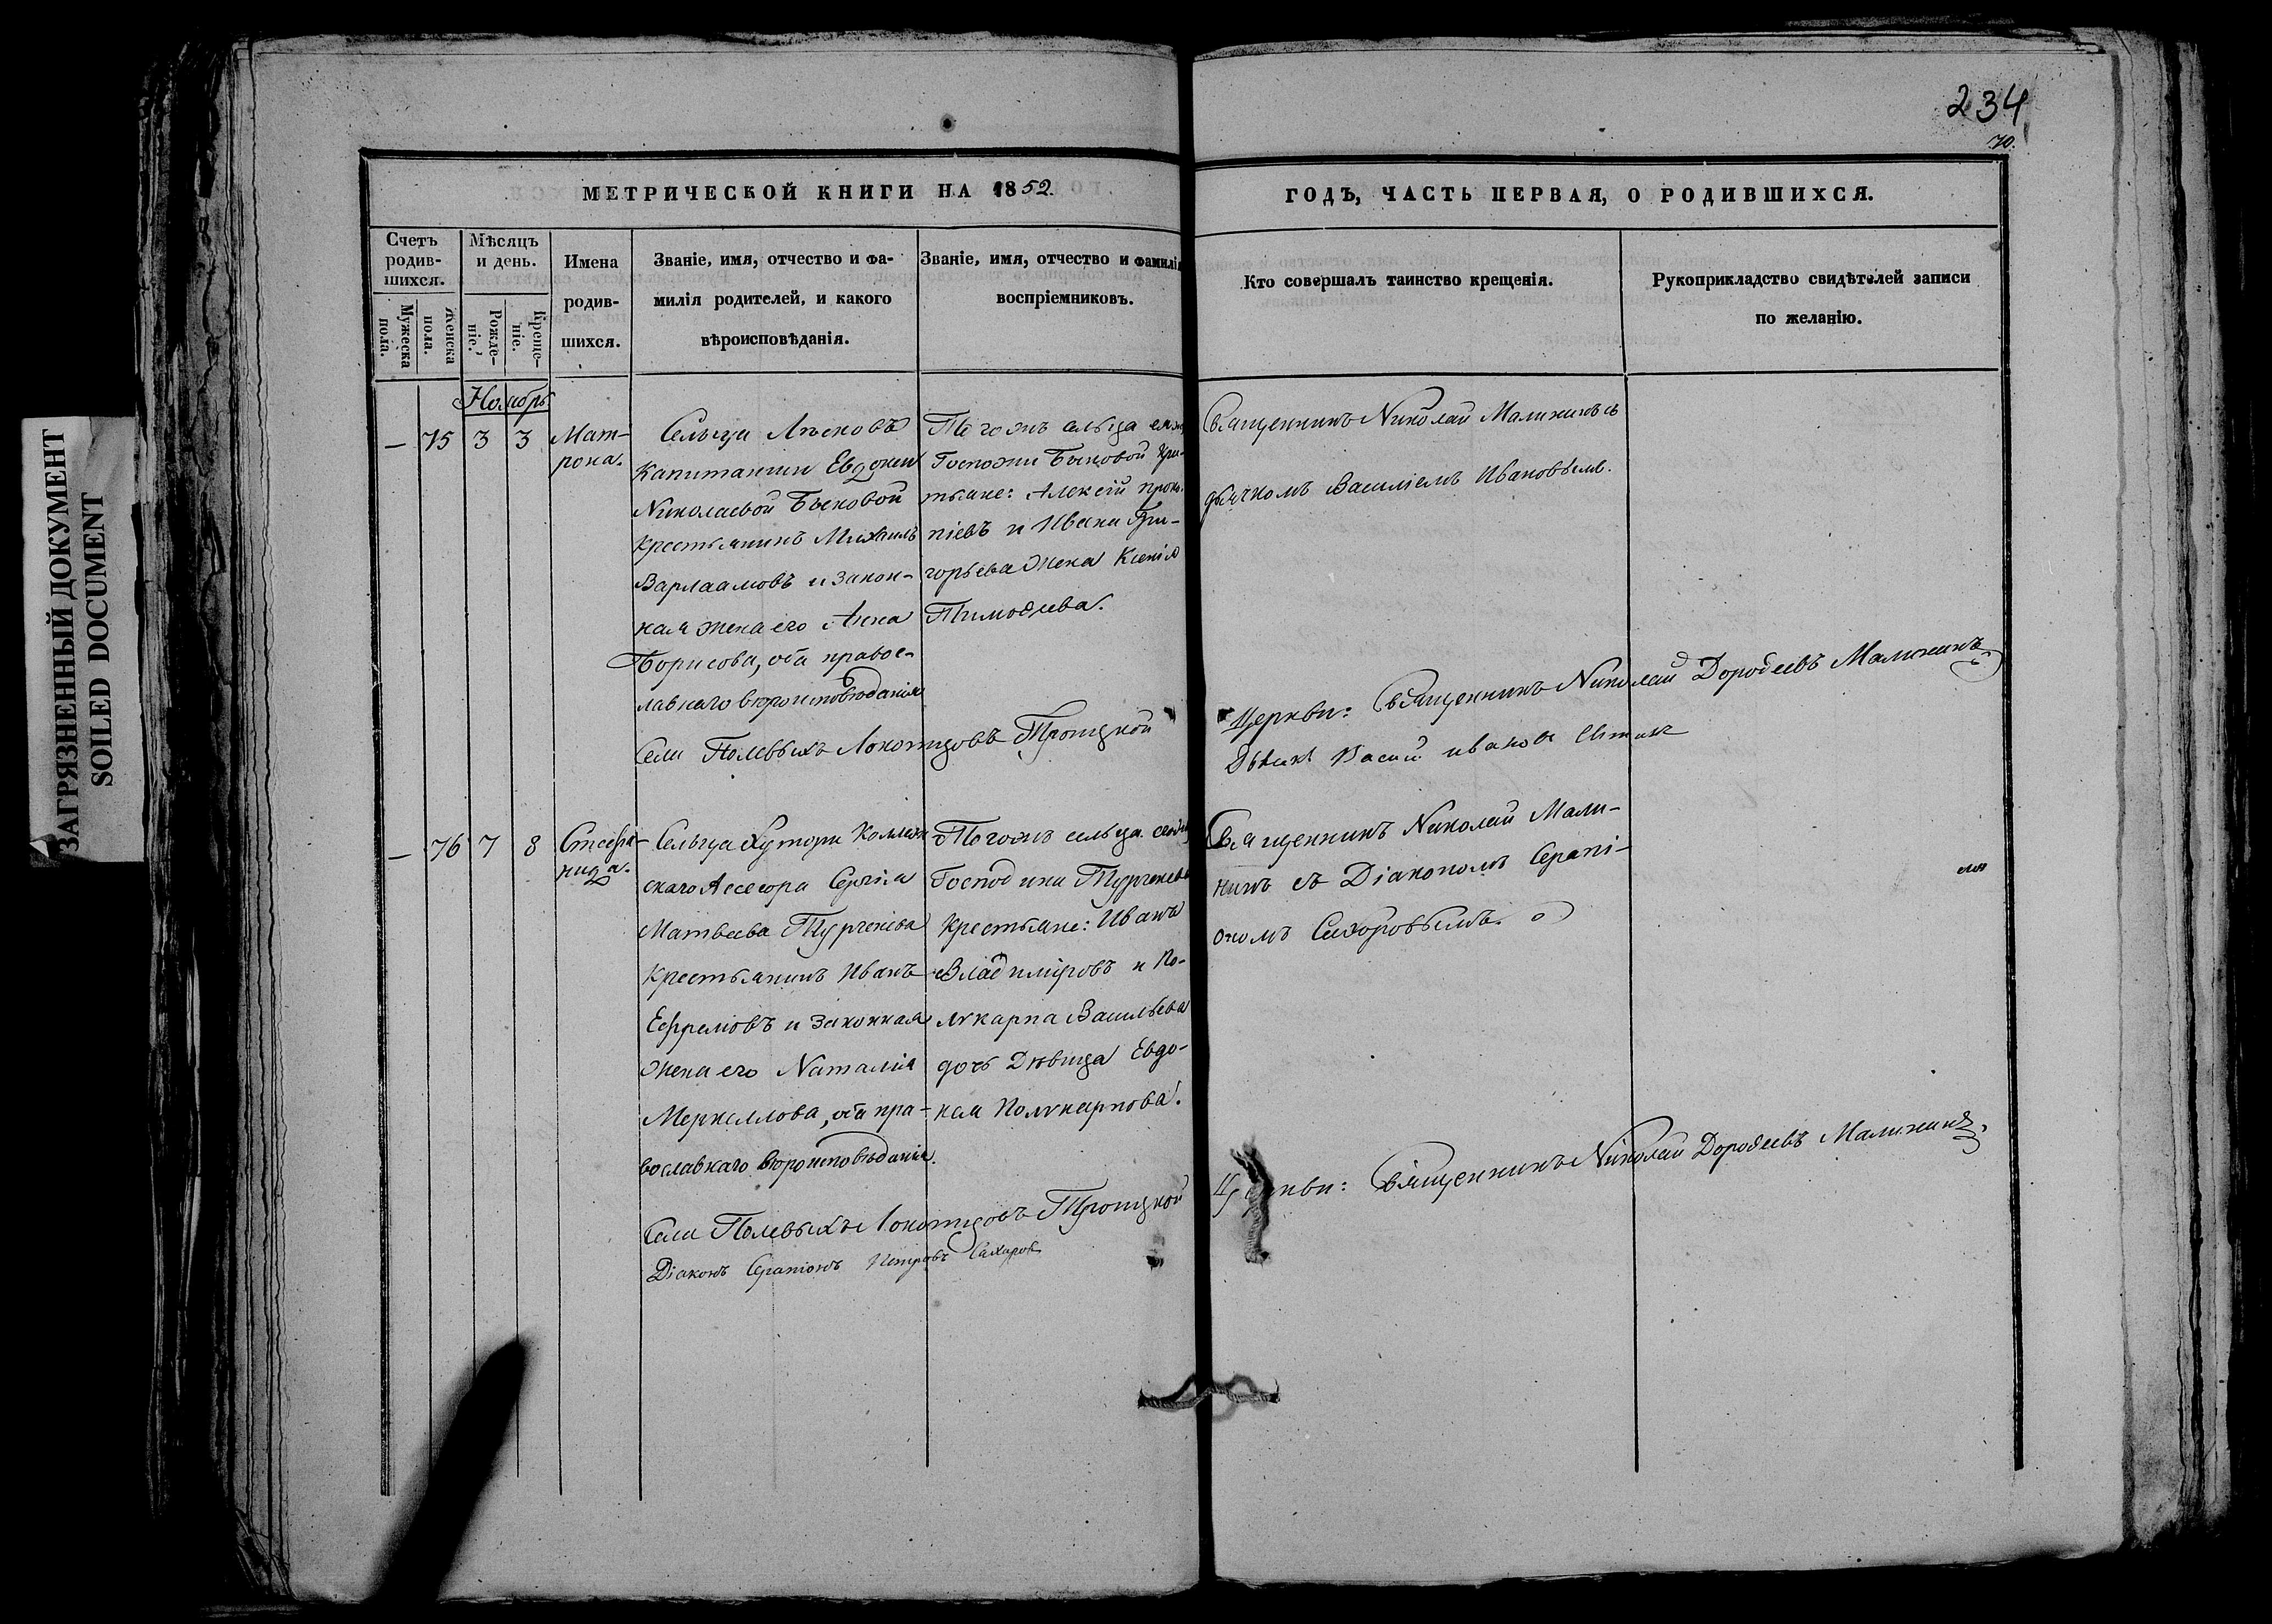 ЗАГРЯЗНЕННЫЙ ДОКУМЕНТ
SOILED DOCUMENT
234
70.
МЕТРИЧЕСКОЙ КНИГИ НА 1852.
ГОДЪ, ЧАСТЬ ПЕРВАЯ, О РОДИВШИХСЯ.
Счетъ родив-шихся.
Мужеска пола.
Женска пола.
Мѣсяцъ и день.
Рожде-ніе.
Креще-ніе.
Имена
родив-
шихся.
Званіе, имя, отчество и фа-
милія родителей, и какого
вѣроисповѣданія.
Званіе, имя, отчество и фамилія
воспріемниковъ.
Кто совершалъ таинство крещенія.
Рукоприкладство свидѣтелей записи
по желанію.
Ноябрь
— 75 3 3
Мат-
рона.
Сельца
Капитанши Евдокіи
Николаевой Быковой
крестьянинъ Михаилъ
Варлаамовъ и закон-
ная жена его Анна
Борисова, оба правос-
лавнаго вѣроисповѣданія
Тогожъ сельца
Госпожи Быковой кре-
стьяне: Алексій Проко-
піевъ и Ивана Гри-
горьева жена Ксенія
Тимофѣева.
Священникъ Николай Малининъ съ
дьячкомъ Василіемъ Ивановымъ.
Села Полевыхъ Локотцовъ Троицкой
Церкви: Священникъ Николай Дорофеевъ Малининъ
Дьячекъ Васий иванов
— 76 7 8
Стефа-
нида.
Сельца Хутора Коллеж-
скаго Ассесора Сергія
Матвеева Тургенева
крестьянинъ Иванъ
Ефремовъ и законная
жена его Наталія
Меркулова, оба пра-
вославнаго вѣроисповѣданія.
Тогожъ сельца
Господина Тургенева
крестьяне: Иванъ
Владиміровъ и По-
ликарпа Васильева
дочь Дѣвица Евдо-
кея Поликарпова.
Священникъ Николай Мали-
нинъ съ Діакономъ Серапі-
ономъ Сахоровымъ.
Села Полевыхъ Локотцовъ Троицкой
Церкви: Священникъ Николай Дорофеевъ Малининъ.
Діаконъ Серапіонъ Петровъ Сахаровъ